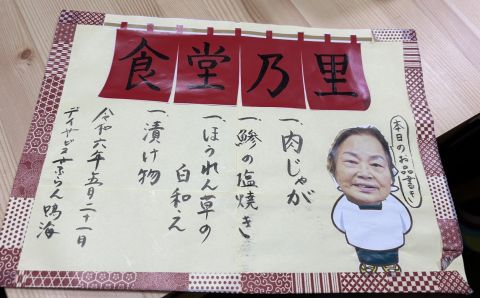 食堂乃里
本日のお品書き
一、肉じゃが
一、鯵の塩焼き
一、ほうれん草の
白和え
一、漬け物
令和六年五月二十一日
デイサービスきらら鳴海